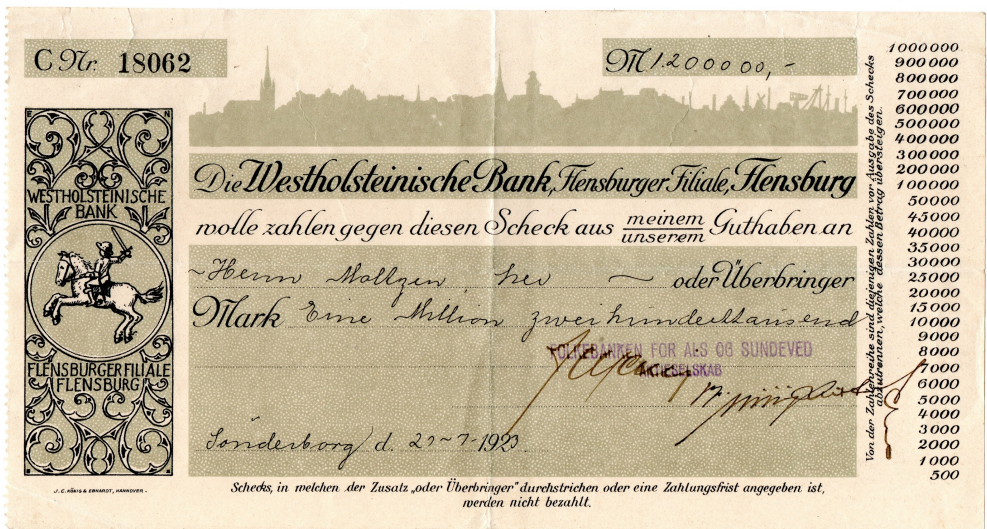 C Nr. 18062
M 1.200000,-
E N
WESTHOLSTEINISCHE
BANK
FLENSBURGER FILIALE
FLENSBURG
J. C. KÖNIG & EBHARDT, HANNOVER.
Die Westholsteinische Bank, Flensburger Filiale, Flensburg
wolle zahlen gegen diesen Scheck aus meinem
unserem Guthaben an
~ Herrn Moltzen, hier ~ oder Überbringer
Mark Eine Million zweihunderttausend
FOLKEBANKEN FOR ALS OG SUNDEVED
AKTIESELSKAB
Sonderborg d. 1923
Schecks, in welchen der Zusatz „oder Überbringer" durchstrichen oder eine Zahlungsfrist angegeben ist,
werden nicht bezahlt.
Von der Zahlenreihe sind diejenigen Zahlen vor Ausgabe des Schecks
abzutrennen, welche dessen Betrag übersteigen.
1000000
900000
800000
700000
600000
500000
400000
300000
200000
100000
50000
45000
40000
35000
30000
25000
20000
15000
10000
9000
8000
7000
6000
5000
4000
3000
2000
1000
500